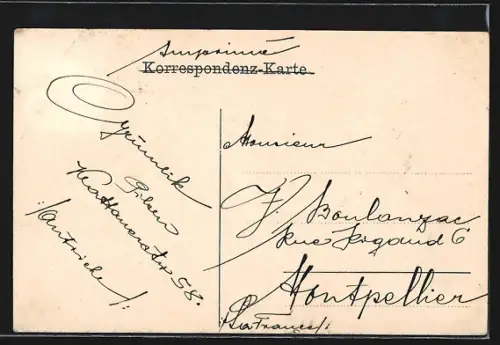 Imprimé
Korrespondenz-Karte.
O Grünwik
Pilsen
58.
/:Autriche:/
Monsieur
J. Boulanzac
Rue Rigaud 6
Montpellier
/:La France:/